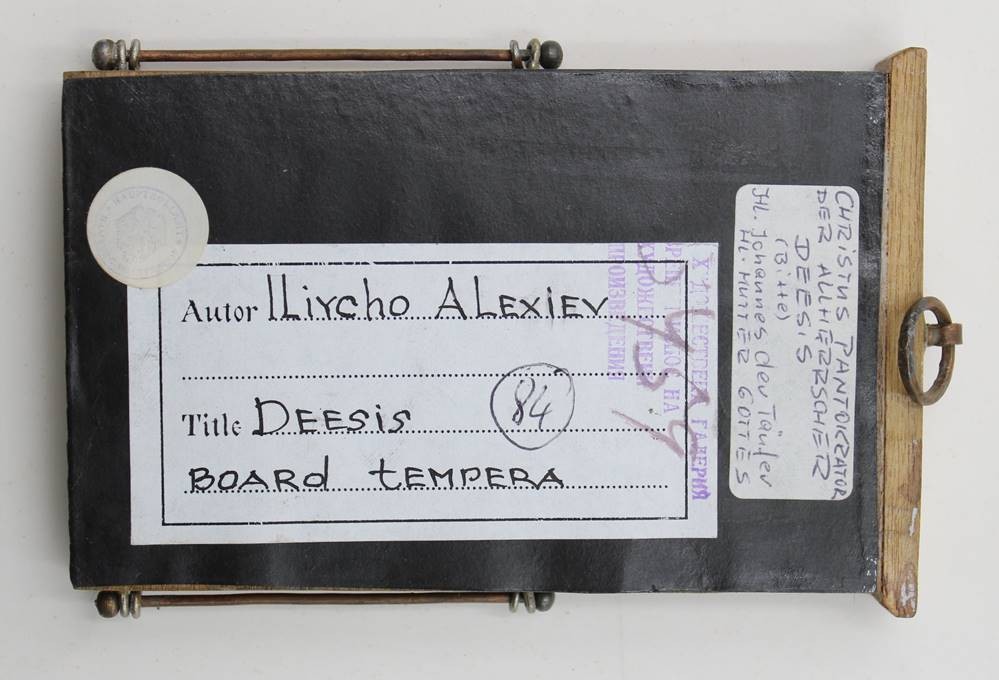 Autor ILiycho ALexiev
Title DEESiS
84
BOARd tEMPERA
ГАЛЕРИЯ
НА
ПРОИЗВЕДЕНИЯ
CHRiSTUS PANTOKRATOR
DER ALLHERRSCHER
DEESiS
(Bitte)
Hl. Johannes der Täufer
Hl. MUTTER GOTTES